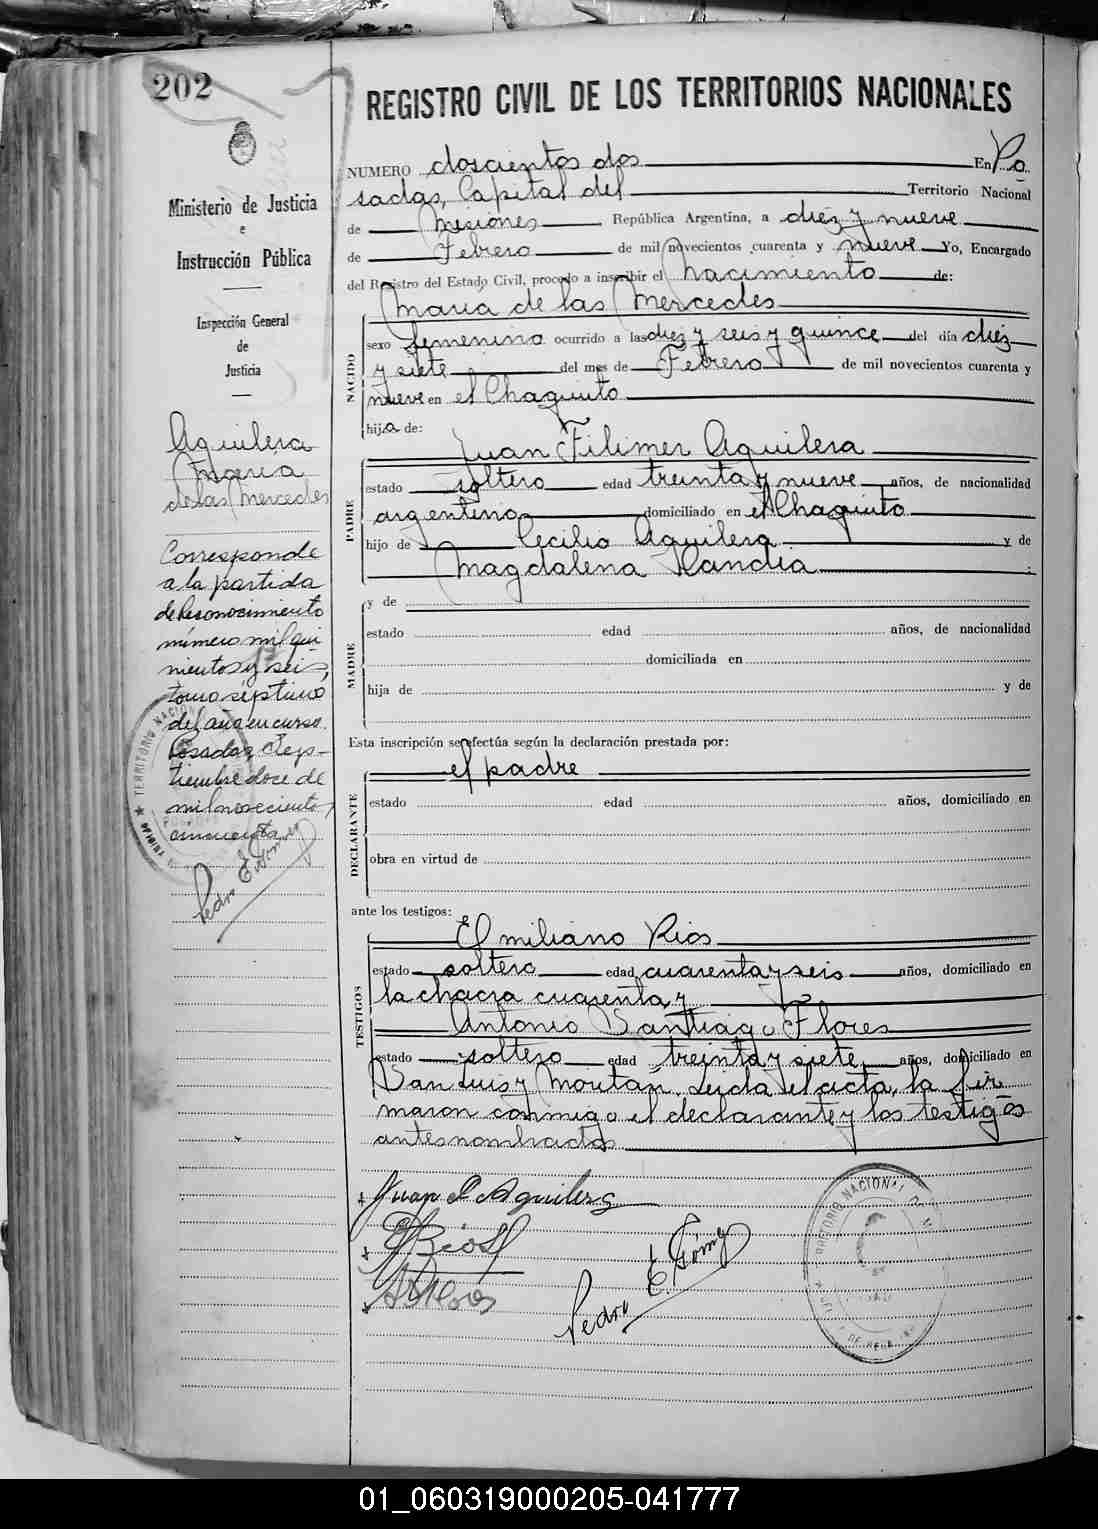 202
REGISTRO CIVIL DE LOS TERRITORIOS NACIONALES
Ministerio de Justicia
e
Instrucción Pública
Inspección General
de
Justicia
Aguilera
Maria
de las Mercedes
Corresponde
a la partida
de Reconocimiento
número mil qui
nientos y seis,
tomo séptimo
del año en curso.
Posadas, Sep-
tiembre doce de
mil novecientos
cincuenta
Pedro E. Gómez
NUMERO doscientos dos En Po
sadas, Capital del Territorio Nacional
de Misiones República Argentina, a diez y nueve
de Febrero de mil novecientos cuarenta y nueve Yo, Encargado
del Registro del Estado Civil, procedo a inscribir el nacimiento de:
NACIDO
Maria de las Mercedes
sexo femenino ocurrido a las diez y seis y quince del día diez
y siete del mes de Febrero de mil novecientos cuarenta y
nueve en el Chaquito
hija de:
PADRE
Juan Filimer Aguilera
estado soltero edad treinta y nueve años, de nacionalidad
argentino domiciliado en el Chaquito
hijo de Cecilio Aguilera y de
Magdalena Kandia
MADRE
y de
estado edad años, de nacionalidad
domiciliada en
hija de y de
Esta inscripción se efectúa según la declaración prestada por:
DECLARANTE
el padre
estado edad años, domiciliado en
obra en virtud de
ante los testigos:
TESTIGOS
Emiliano Rios
estado soltero edad cuarenta y seis años, domiciliado en
la chacra cuarenta y
Antonio Santiago Flores
estado soltero edad treinta y siete años, domiciliado en
San Luis y Moután. Leida el acta, la fir
maron conmigo el declarante y los testigos
antes nombrados
Juan F Aguilera
E Rios
A S Flores
Pedro E. Gómez
TERRITORIO NACIONAL DE
01_060319000205-041777